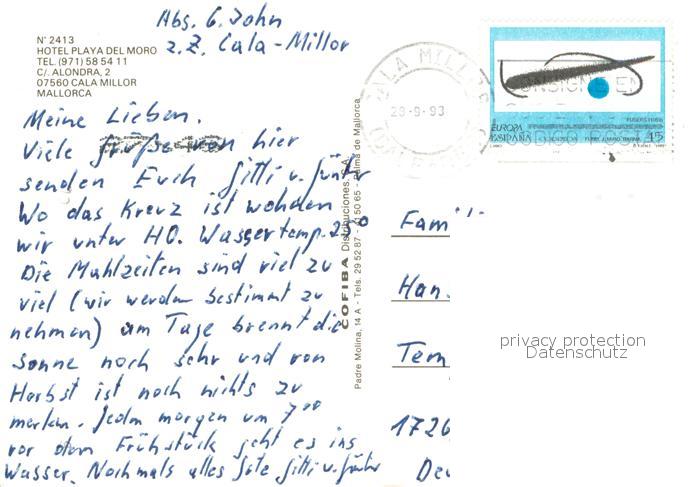 Abs. G. John
z.Z. Cala-Millor
N° 2413
HOTEL PLAYA DEL MORO
TEL. (971) 58 54 11
C/. ALONDRA, 2
07560 CALA MILLOR
MALLORCA
Meine Lieben.
Viele Grüße von hier
senden Euch Gitti u. Günter
Wo das Kreuz ist wohnen
wir unter HO. Wassertemp. 25°
Die Mahlzeiten sind viel zu
viel (wir werden bestimmt zu
nehmen) am Tage brennt die
Sonne noch sehr und von
Herbst ist noch nichts zu
merken. Jeden morgen um 7⁰⁰
vor dem Frühstück geht es ins
Wasser. Nochmals alles Gute Gitti u. Günter
COFIBA Distribuciones, S.A.
Padre Molina, 14 A - Tels. 29 52 87 - 41 50 65 - Palma de Mallorca
CALA MILLOR
29-9-93
EUROPA
ESPAÑA
45
Fami
Han
Tem
1726
De
privacy protection
Datenschutz